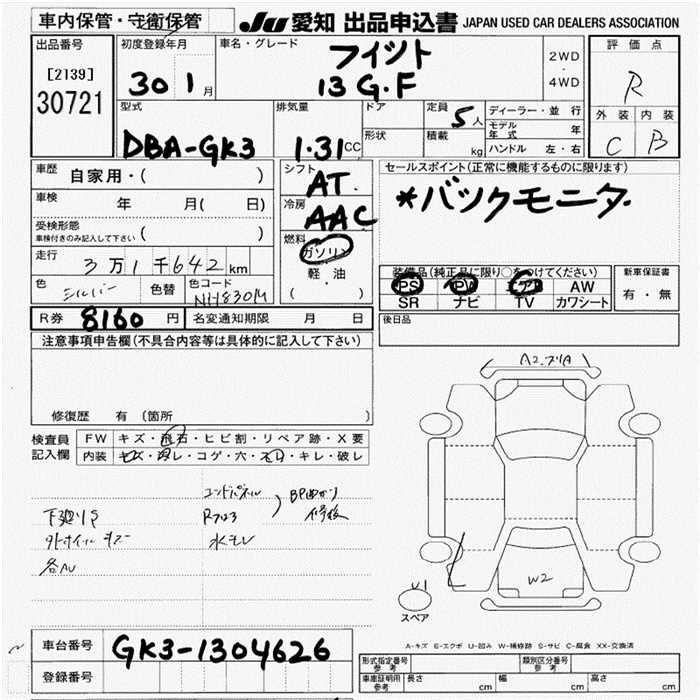 車内保管・守衛保管
JU 愛知 出品申込書 JAPAN USED CAR DEALERS ASSOCIATION
出品番号
[2139]
30721
初度登録年月
30 1 月
車名・グレード
フィット
13G.F
2WD
・
4WD
評価点
R
外装 内装
C B
型式
DBA-GK3
排気量
1.31 CC
ドア
形状
定員 5 人
積載 kg
ディーラー・並行
モデル年式 年
ハンドル 左・右
車歴 自家用・( )
車検 年 月( 日)
受検形態
車検付きのみ記入して下さい ( )
走行 3万1千642 km
色 シルバー 色替 色コード NH830M
シフト
AT.
冷房
AAC
燃料
ガソリン
軽・油
( ・ )
セールスポイント(正常に機能するものに限ります)
*バックモニタ
装備品(純正品に限り○をつけてください)
PS PW エアB AW
SR ナビ TV カワシート
新車保証書
有・無
R券 8160 円 名変通知期限 月 日
後日品
注意事項申告欄(不具合内容等は具体的に記入して下さい)
修復歴 有(箇所 )
検査員
記入欄
FW キズ・飛石・ヒビ割・リペア跡・X要
内装 キズ・ヨゴレ・コゲ・穴・スレ・キレ・破レ
下廻りS
外ホイール キズ
水モレ
修復
A2
W2
U1
スペア
A-キズ E-エクボ U-凹み W-補修跡 S-サビ C-腐食 XX-交換済
車台番号 GK3-1304626
登録番号
形式指定番号
参考
類別区分番号
参考
車庫証明用
参考
長さ cm 幅 cm 高さ cm